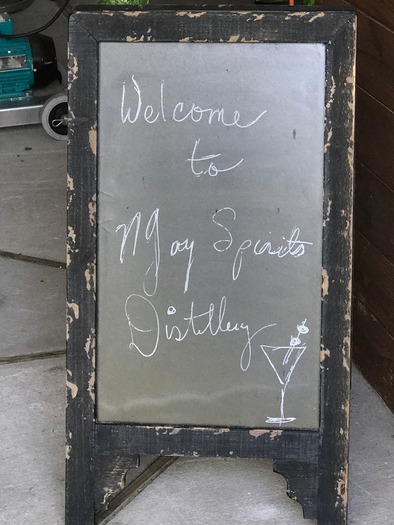 Welcome
to
Njoy Spirits
Distillery